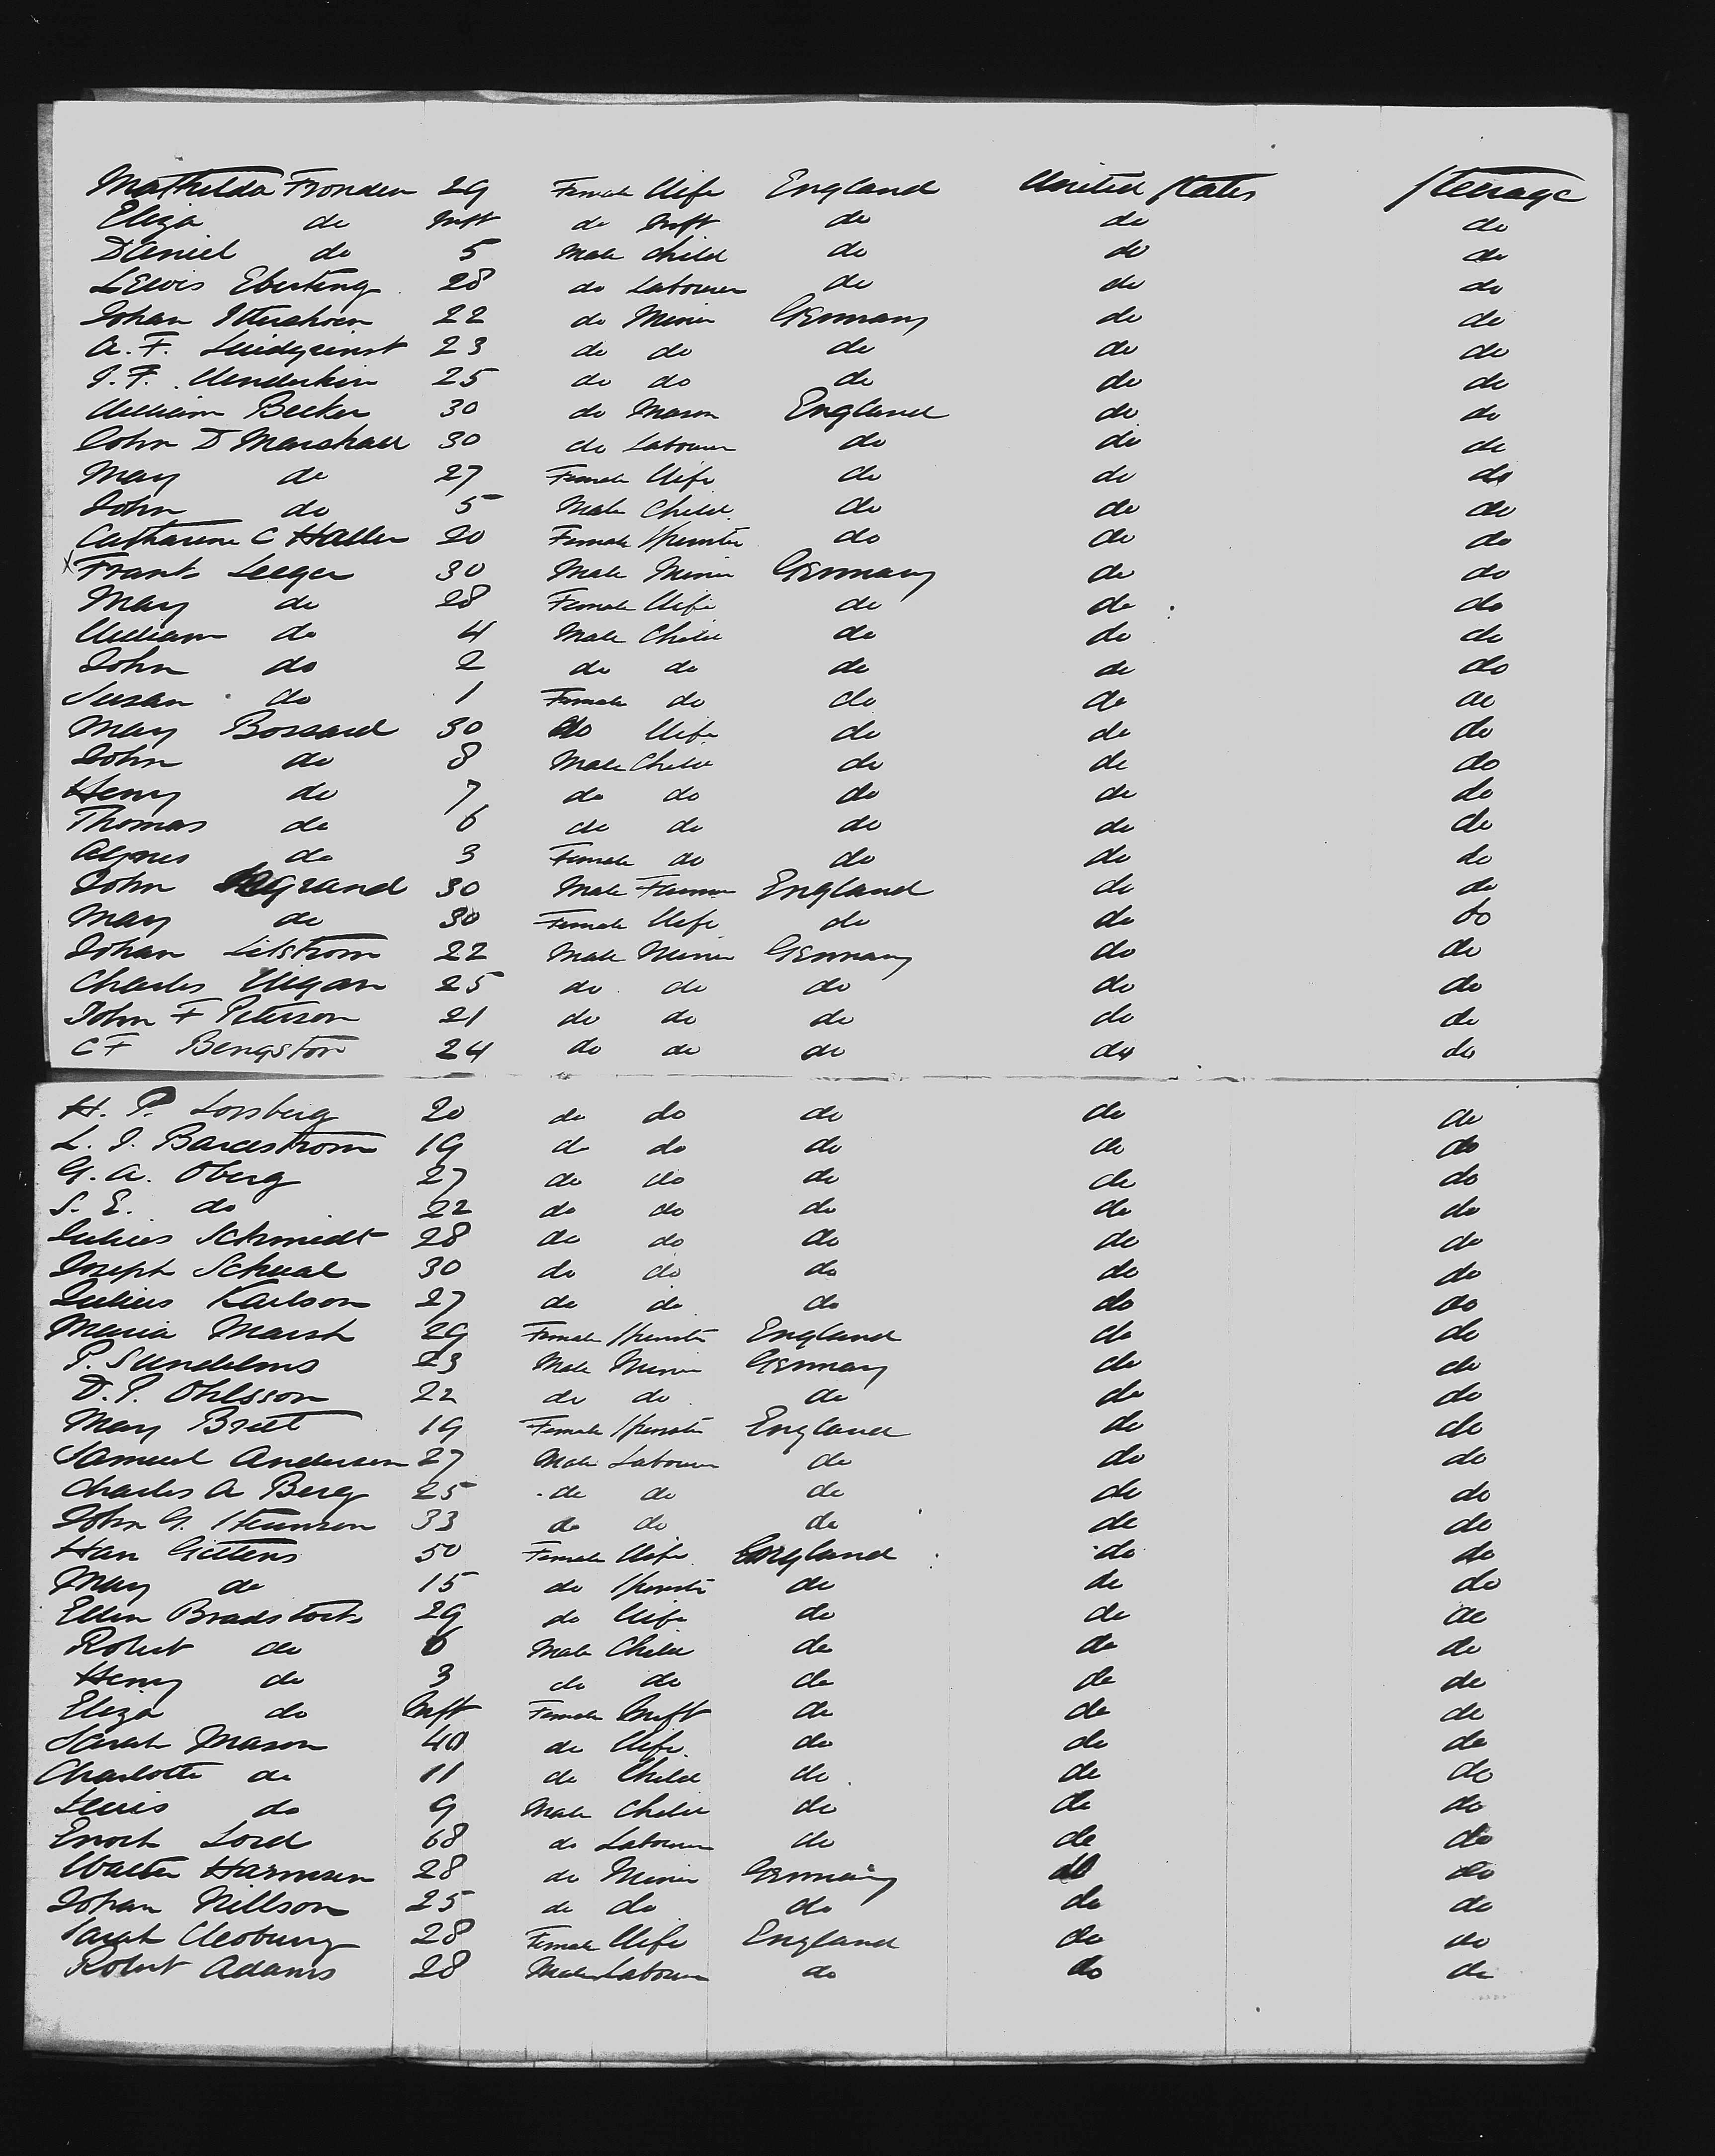 Mathilda Fronden 29 Female Wife England United States Steerage
Eliza do Inft do Inft do do do
Daniel do 5 Male Child do do do
Lewis Eberting 28 do Labourer do do do
Johan 22 do Miner Germany do do
A. F. 23 do do do do do
J. F. 25 do do do do do
William Becker 30 do Mason England do do
John D Marshall 30 do Labourer do do do
Mary do 27 Female Wife do do do
John do 5 Male Child do do do
Catharine C Haller 20 Female Spinster do do do
x Frank Leeger 30 Male Miner Germany do do
Mary do 28 Female Wife do do do
William do 4 Male Child do do do
John do 2 do do do do do
Susan do 1 Female do do do do
Mary Bossard 30 do Wife do do do
John do 8 Male Child do do do
Henry do 7 do do do do do
Thomas do 6 do do do do do
Agnes do 3 Female do do do do
John Legrand 30 Male Farmer England do do
Mary do 30 Female Wife do do do
Johan Lilstrom 22 Male Miner Germany do do
Charles Wigan 25 do do do do do
John F Peterson 21 do do do do do
C F Bengston 24 do do do do do
H. P. Lorsberg 20 do do do do do
L. J. 19 do do do do do
G. A. Oberg 27 do do do do do
S. E. do 22 do do do do do
Julius Schmidt 28 do do do do do
Joseph Schual 30 do do do do do
Julius Karlson 27 do do do do do
Maria Marsh 29 Female Spinster England do do
P. 23 Male Miner Germany do do
D. P. Ohlsson 22 do do do do do
Mary Brett 19 Female Spinster England do do
Samuel Anderson 27 Male Labourer do do do
Charles A Berg 25 do do do do do
John G. 33 do do do do do
Han Gittens 50 Female Wife England do do
Mary do 15 do Spinster do do do
Ellen Bradstock 29 do Wife do do do
Robert do 6 Male Child do do do
Henry do 3 do do do do do
Eliza do Inft Female Inft do do do
Sarah Mason 40 do Wife do do do
Charlotte do 11 do Child do do do
Lewis do 9 Male Child do do do
Enoch Lord 68 do Labourer do do do
Walter Harmsen 28 do Miner Germany do do
Johan Nillson 25 do do do do do
Sarah 28 Female Wife England do do
Robert Adams 28 Male Labourer do do do